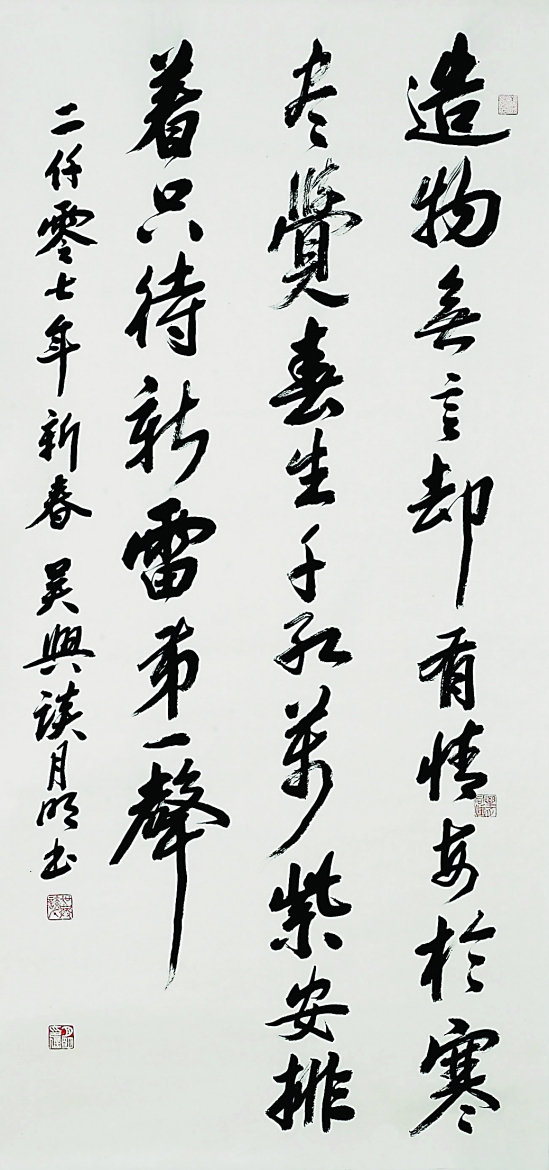 造物無言却有情每於寒
尽覺春生千紅萬紫安排
着只待新雷第一聲
二仟零七年新春吳興談月明书